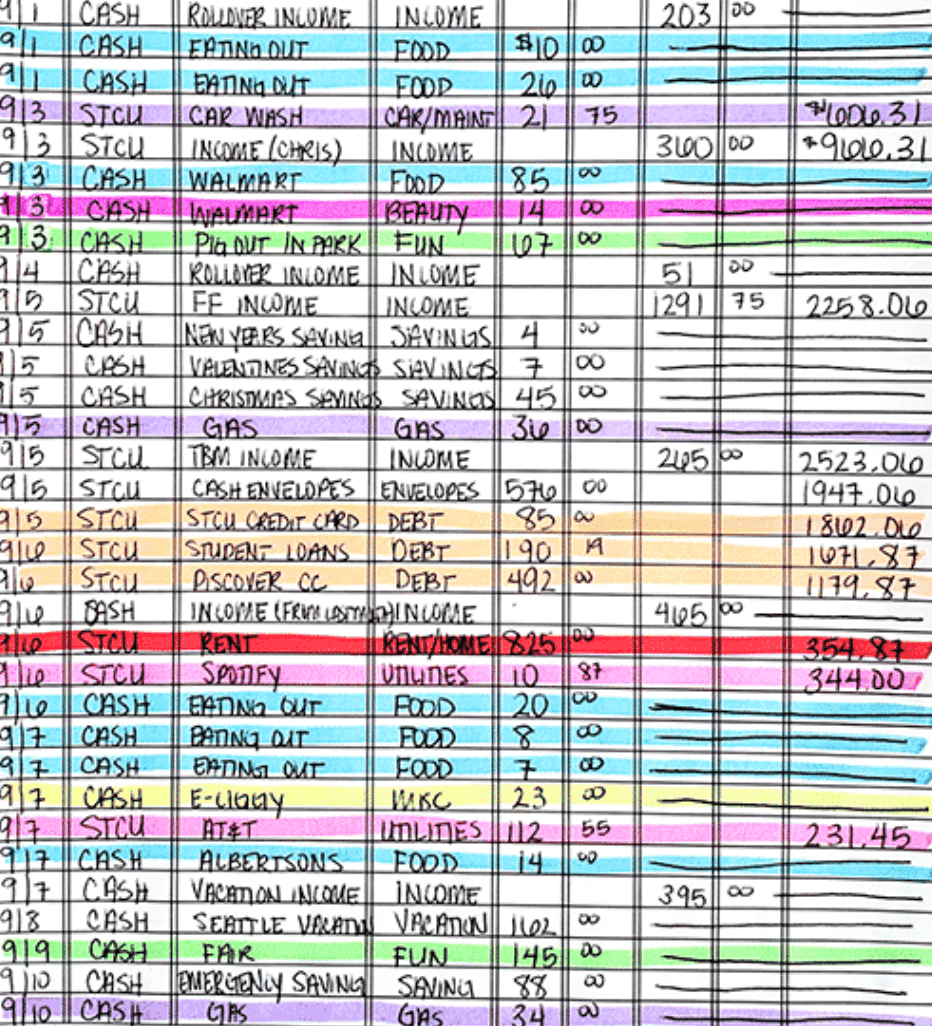 9/1 CASH ROLLOVER INCOME INCOME 203 00
9/1 CASH EATING OUT FOOD $10 00
9/1 CASH EATING OUT FOOD 26 00
9/3 STCU CAR WASH CAR/MAINT 21 75 $606.31
9/3 STCU INCOME (CHRIS) INCOME 360 00 $966.31
9/3 CASH WALMART FOOD 85 00
9/3 CASH WALMART BEAUTY 14 00
9/3 CASH PIG OUT IN PARK FUN 67 00
9/4 CASH ROLLOVER INCOME INCOME 51 00
9/5 STCU FF INCOME INCOME 1291 75 2258.06
9/5 CASH NEW YEARS SAVING SAVINGS 4 00
9/5 CASH VALENTINES SAVINGS SAVINGS 7 00
9/5 CASH CHRISTMAS SAVINGS SAVINGS 45 00
9/5 CASH GAS GAS 36 00
9/5 STCU TBM INCOME INCOME 265 00 2523.06
9/5 STCU CASH ENVELOPES ENVELOPES 576 00 1947.06
9/5 STCU STCU CREDIT CARD DEBT 85 00 1862.06
9/6 STCU STUDENT LOANS DEBT 190 19 1671.87
9/6 STCU DISCOVER CC DEBT 492 00 1179.87
9/6 CASH INCOME (FROM INCOME 465 00
9/6 STCU RENT RENT/HOME 825 00 354.87
9/6 STCU SPOTIFY UTILITIES 10 87 344.00
9/6 CASH EATING OUT FOOD 20 00
9/7 CASH EATING OUT FOOD 8 00
9/7 CASH EATING OUT FOOD 7 00
9/7 CASH E-CIGGY MKC 23 00
9/7 STCU AT&T UTILITIES 112 55 231.45
9/7 CASH ALBERTSONS FOOD 14 00
9/7 CASH VACATION INCOME INCOME 395 00
9/8 CASH SEATTLE VACATION VACATION 162 00
9/9 CASH FAIR FUN 145 00
9/10 CASH EMERGENCY SAVING SAVING 88 00
9/10 CASH GAS GAS 34 00